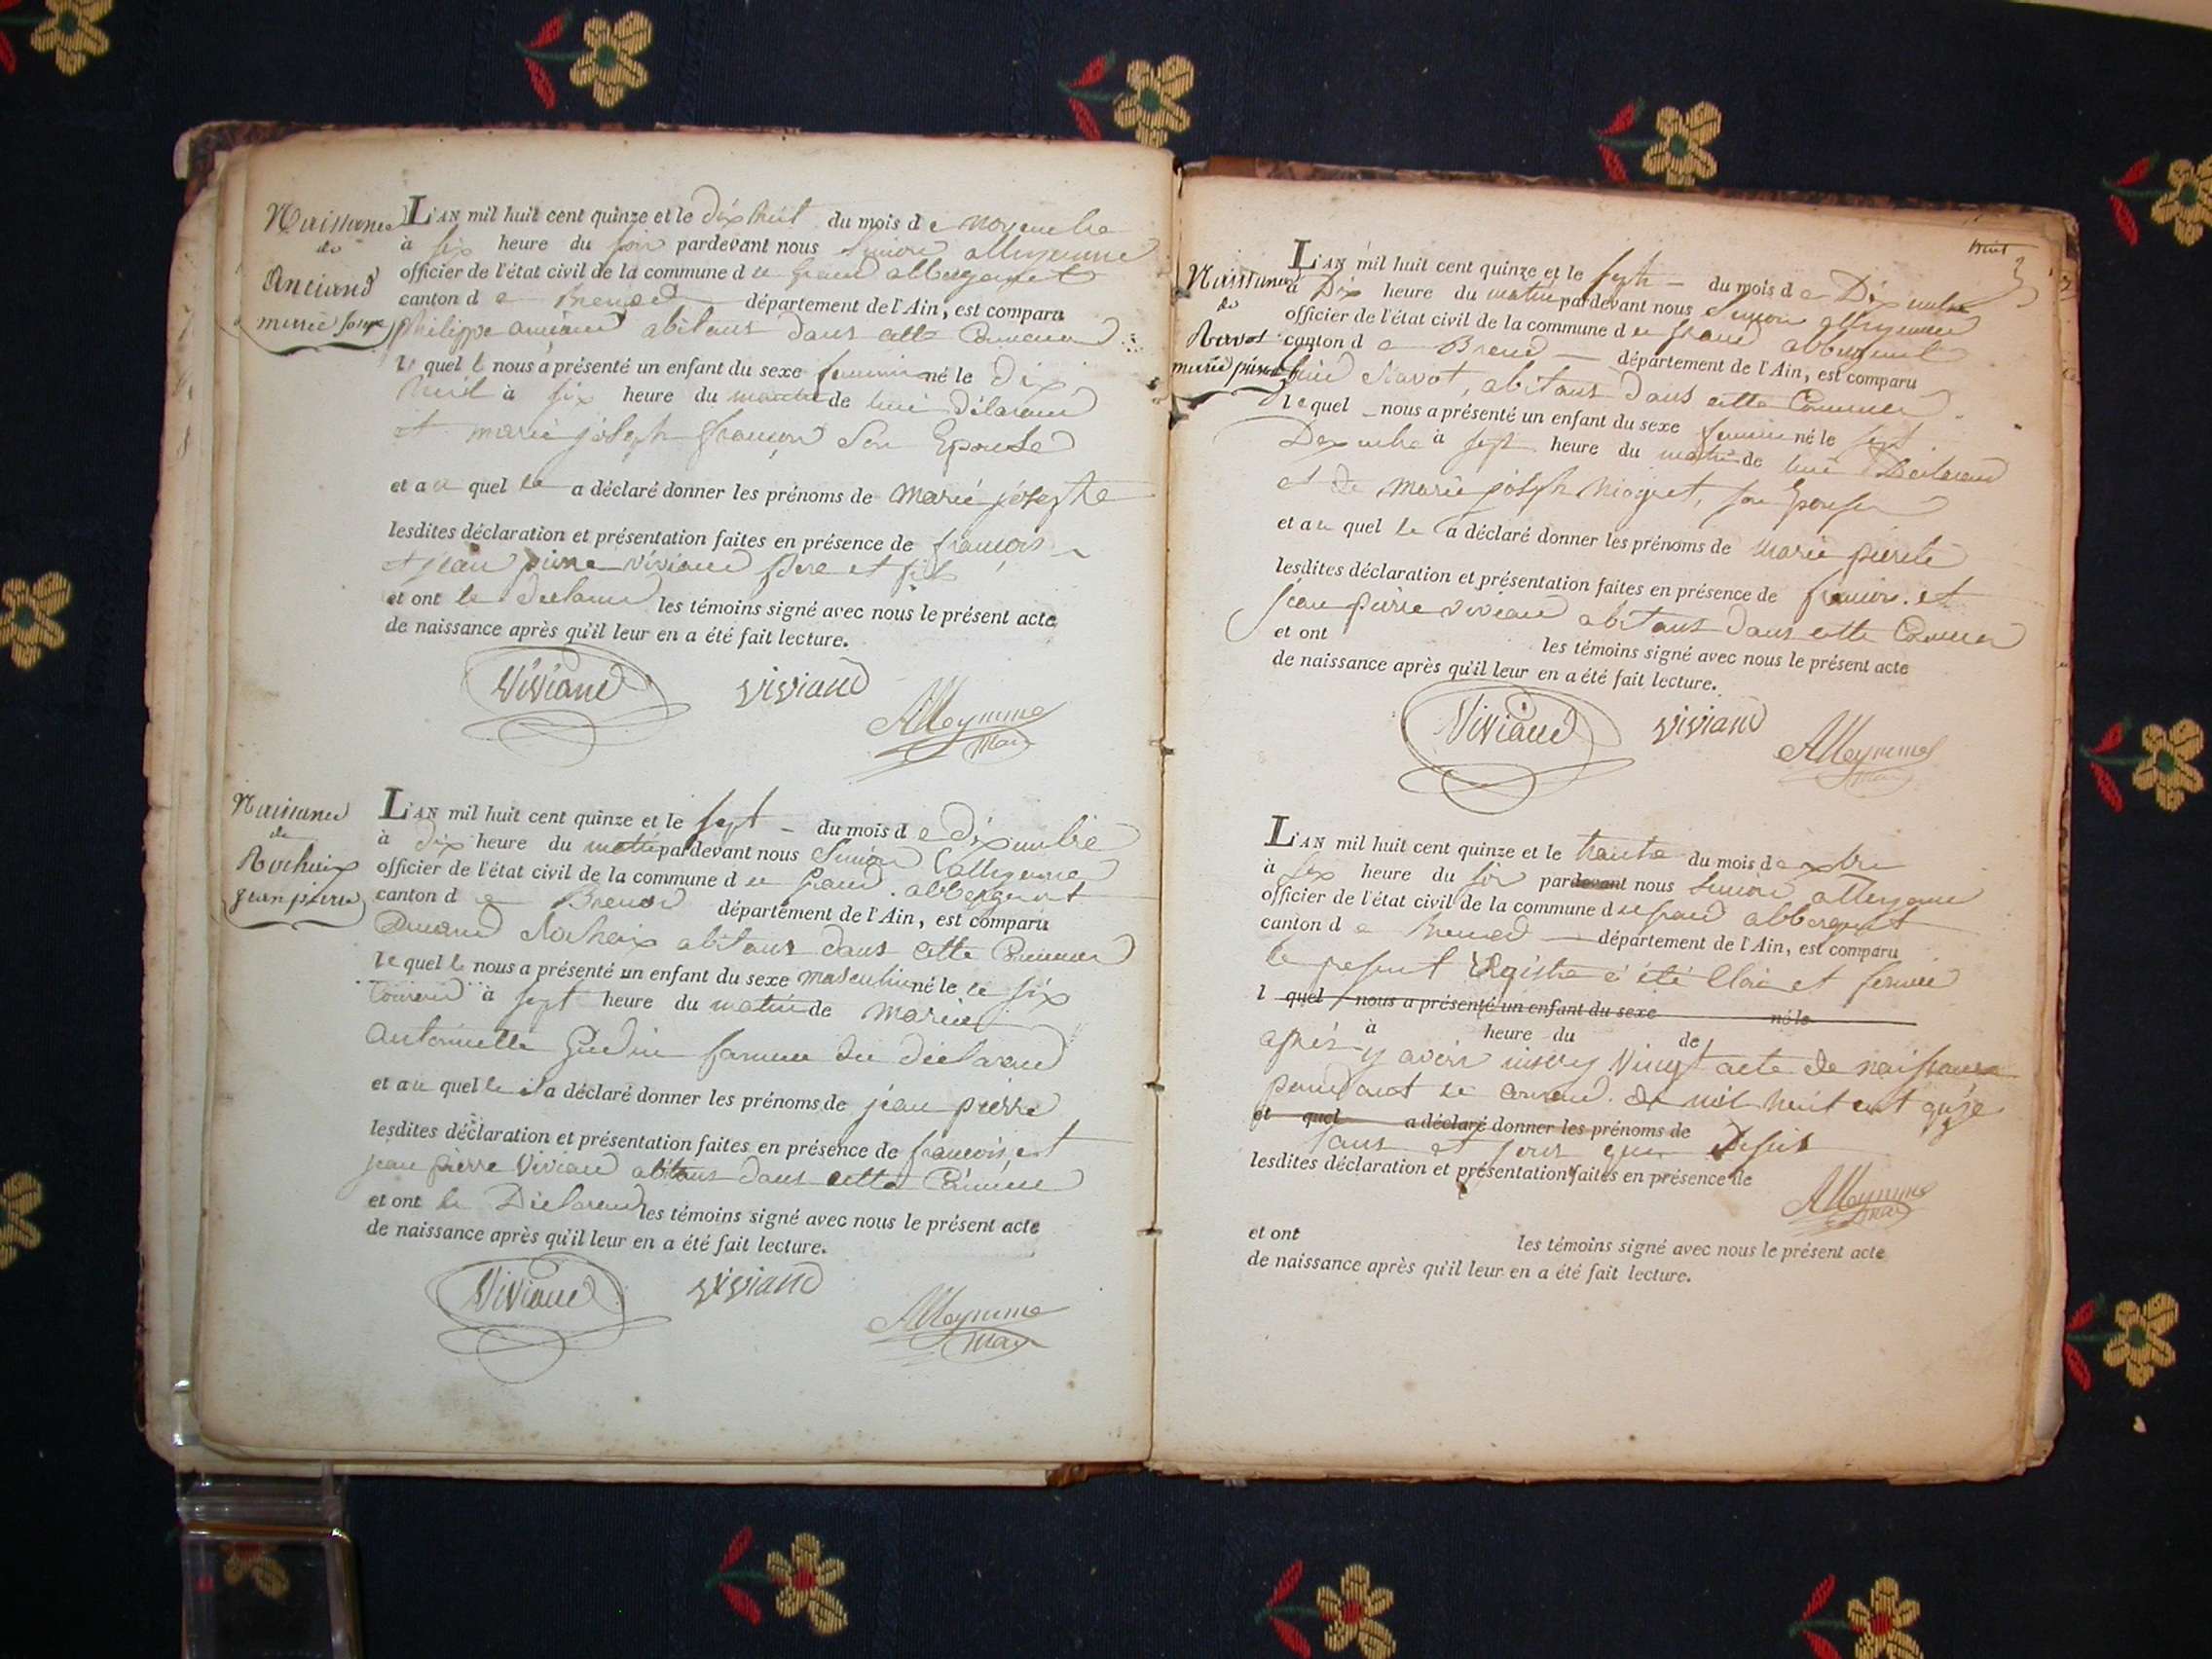 Naissance
de
Anciand
marie josephe
L'AN mil huit cent quinze et le dix huit du mois de novembre
à six heure du soir pardevant nous Simon alleymme
officier de l'état civil de la commune d u grand abbergement
canton d e Brenod département de l'Ain, est comparu
philippe anciand abitans dans cette Commune
le quel nous a présenté un enfant du sexe feminin né le dix
huit à six heure du matin de lui déclarand
et marie joseph françon Son Epouse
et au quel le a déclaré donner les prénoms de marie josephte
lesdites déclaration et présentation faites en présence de françois
et jean pierre viviand père et fils
et ont le declarand les témoins signé avec nous le présent acte
de naissance après qu'il leur en a été fait lecture.
Viviand viviand Alleymme
Mair
Naissance
de
Rochaix
jean pierre
L'AN mil huit cent quinze et le sept du mois de dixembre
à dix heure du matin pardevant nous Simon alleymme
officier de l'état civil de la commune d u grand abbergement
canton d e Brenod département de l'Ain, est comparu
Rochaix abitans dans cette Commune
le quel nous a présenté un enfant du sexe masculin né le le six
courand à sept heure du matin de marie
antoinette Gudin famme du déclarand
et au quel le il a déclaré donner les prénoms de jean pierre
lesdites déclaration et présentation faites en présence de francois et
jean pierre Viviand abitans dans cette Commune
et ont le Declarand les témoins signé avec nous le présent acte
de naissance après qu'il leur en a été fait lecture.
Viviand viviand Alleymme
Mair
huit
Naissance
de
Ravot
marie pierrette
L'AN mil huit cent quinze et le sept du mois de Dixembre
à Dix heure du matin pardevant nous Simon alleymme
officier de l'état civil de la commune d u grand abbergement
canton d e Brenod département de l'Ain, est comparu
Ravot, abitans dans cette Commune
le quel nous a présenté un enfant du sexe feminin né le sept
Dexembre à sept heure du matin de lui Déclarand
et de marie joseph niogret, son Epouse
et au quel le a déclaré donner les prénoms de marie pierrete
lesdites déclaration et présentation faites en présence de francois et
jean pierre viviand abitans dans cette Commune
et ont les témoins signé avec nous le présent acte
de naissance après qu'il leur en a été fait lecture.
Viviand viviand Alleymme
Mair
L'AN mil huit cent quinze et le trante du mois de xbre
à six heure du soir pardevant nous Simon alleymme
officier de l'état civil de la commune d u grand abbergement
canton d e Brenod département de l'Ain, est comparu
le present Registre a été Clos et fermé
l quel nous a présenté un enfant du sexe né le
à heure du de
après y avoir inscry Vingt acte de naissance
pendant le courand de mil huit cent quinze
et quel a déclaré donner les prénoms de
jour que Desus
lesdites déclaration et présentation faites en présence de
Alleymme
Mair
et ont les témoins signé avec nous le présent acte
de naissance après qu'il leur en a été fait lecture.